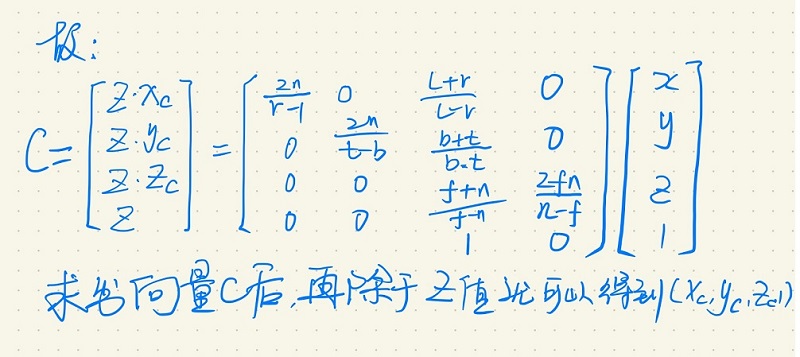 故:
C = [ z·x_c ; z·y_c ; z·z_c ; z ] = [ 2n/(r-l) 0 (l+r)/(l-r) 0 ; 0 2n/(t-b) (b+t)/(b-t) 0 ; 0 0 (f+n)/(f-n) 2fn/(n-f) ; 0 0 1 0 ] [ x ; y ; z ; 1 ]
求出向量C后,再除于z值就可以得到(x_c,y_c,z_c,1)